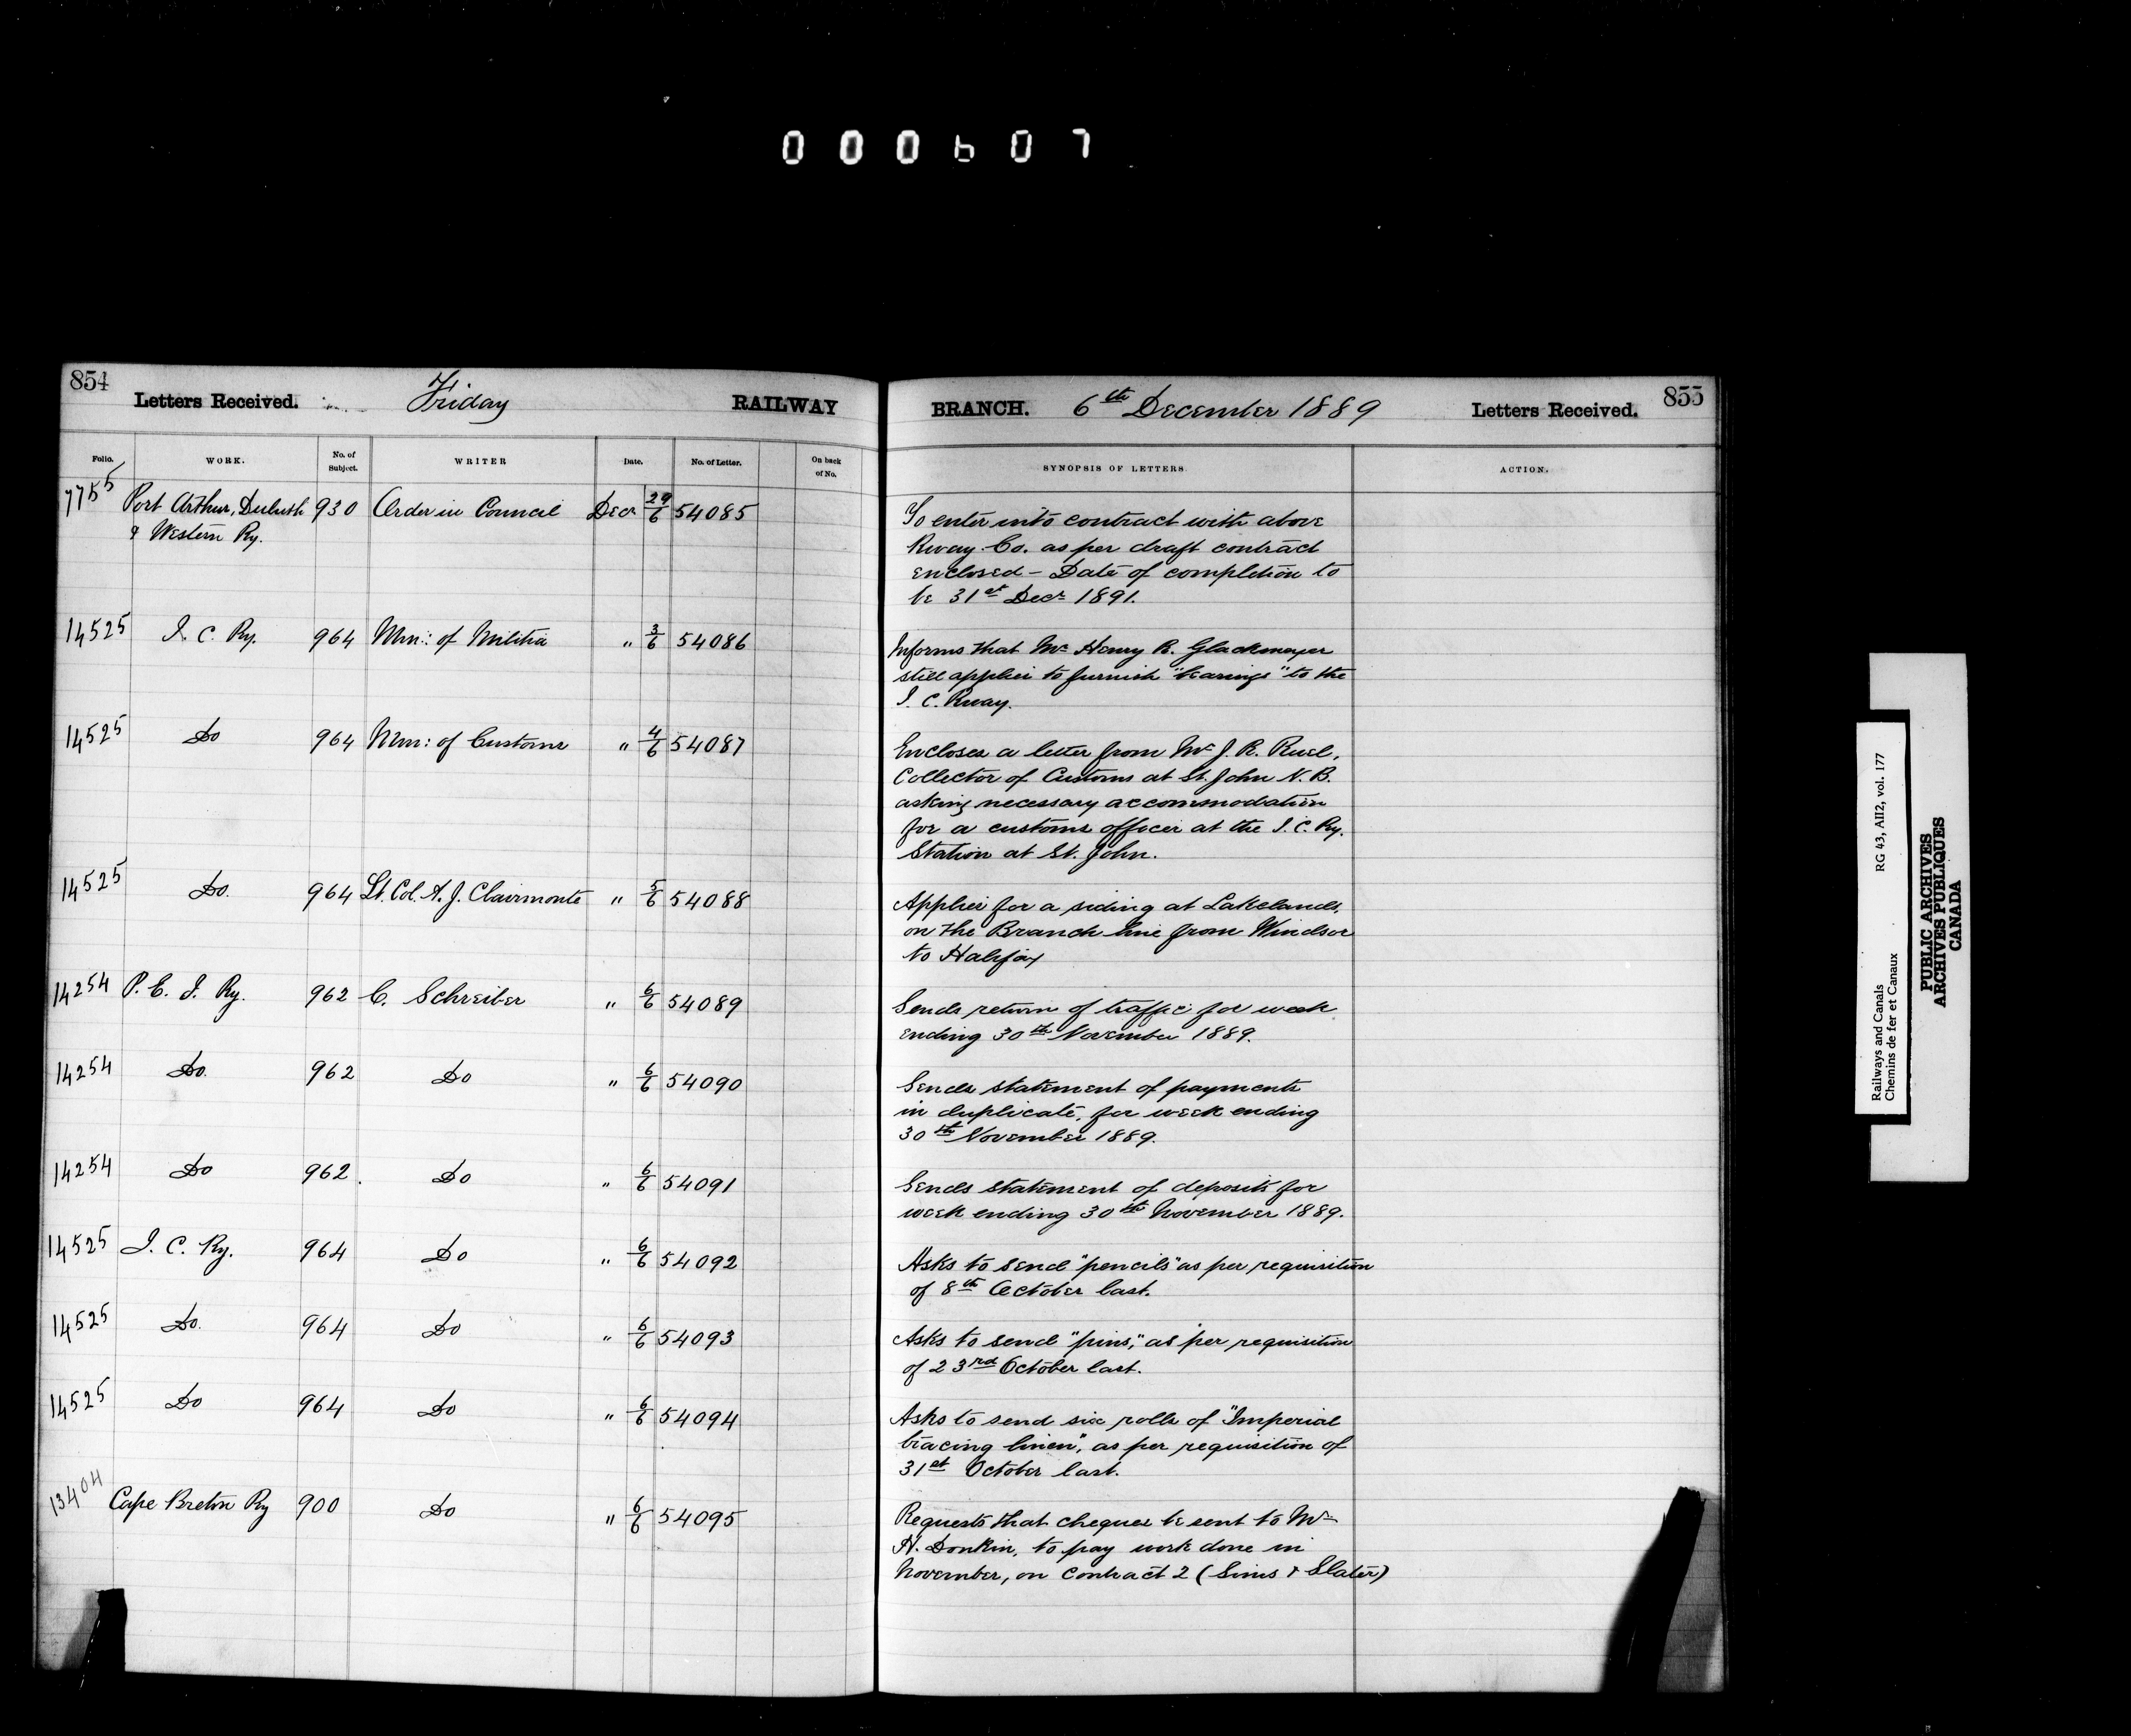 000607
854
Letters Received. Friday RAILWAY
Folio. WORK. No. of Subject. WRITER Date. No. of Letter. On back of No.
7755 Port Arthur, Duluth 930 Order in Council Decr 29/6 54085
& Western Ry.
14525 I. C. Ry. 964 Min: of Militia " 3/6 54086
14525 Do 964 Min: of Customs " 4/6 54087
14525 Do. 964 Lt. Col. A. J. Clairmonte " 5/6 54088
14254 P. E. I. Ry. 962 C. Schreiber " 6/6 54089
14254 Do. 962 Do " 6/6 54090
14254 Do 962. Do " 6/6 54091
14525 I. C. Ry. 964 Do " 6/6 54092
14525 Do. 964 Do " 6/6 54093
14525 Do 964 Do " 6/6 54094
13404 Cape Breton Ry 900 Do " 6/6 54095
BRANCH. 6th December 1889 Letters Received. 855
SYNOPSIS OF LETTERS ACTION.
To enter into contract with above
Rway. Co. as per draft contract
enclosed - Date of completion to
be 31st Decr 1891.
Informs that Mr Henry R. Glackmeyer
still applies to furnish "bearings" to the
I. C. Rway.
Encloses a letter from Mr J. R. Ruel,
Collector of Customs at St. John N. B.
asking necessary accommodation
for a customs officer at the I. C. Ry.
Station at St. John.
Applies for a siding at Lakelands,
on the Branch line from Windsor
to Halifax
Sends return of traffic for week
ending 30th November 1889.
Sends statement of payments
in duplicate, for week ending
30th November 1889.
Sends statement of deposits for
week ending 30th November 1889.
Asks to send "pencils" as per requisition
of 8th October last.
Asks to send "pins," as per requisition
of 23rd October last.
Asks to send six rolls of "Imperial
tracing linen", as per requisition of
31st October last.
Requests that cheques be sent to Mr
H. Donkin, to pay work done in
November, on Contract 2 (Sims & Slater)
Railways and Canals RG 43, AII2, vol. 177
Chemins de fer et Canaux
PUBLIC ARCHIVES
ARCHIVES PUBLIQUES
CANADA